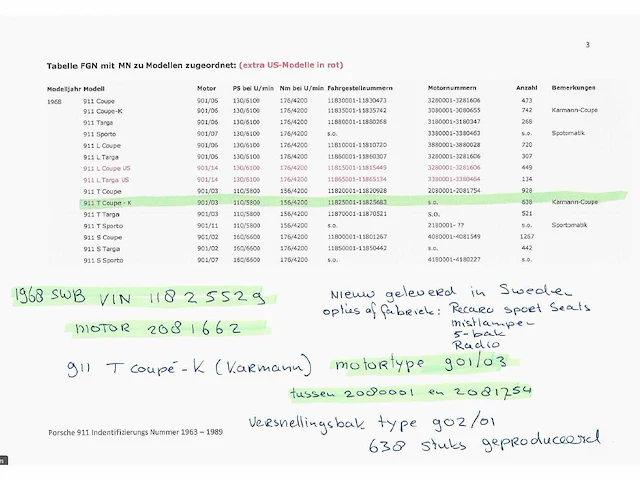 3
Tabelle FGN mit MN zu Modellen zugeordnet: (extra US-Modelle in rot)
Modelljahr Modell Motor PS bei U/min Nm bei U/min Fahrgestellnummern Motornummern Anzahl Bemerkungen
1968 911 Coupe 901/06 130/6100 176/4200 11830001-11830473 3280001-3281606 473
911 Coupe-K 901/06 130/6100 176/4200 11835001-11835742 3080001-3080655 742 Karmann-Coupe
911 Targa 901/06 130/6100 176/4200 11880001-11880268 3180001-3180347 268
911 Sporto 901/07 130/6100 176/4200 s.o. 3380001-3380463 s.o. Spotomatik
911 L Coupe 901/06 130/6100 176/4200 11810001-11810720 3880001-3880028 720
911 L Targa 901/06 130/6100 176/4200 11860001-11860307 3280001-3281606 307
911 L Coupe US 901/14 130/6100 176/4200 11815001-11815449 3280001-3281606 449
911 L Targa US 901/14 130/6100 176/4200 11865001-11865134 3380001-3380464 134
911 T Coupe 901/03 110/5800 156/4200 11820001-11820928 2080001-2081754 928
911 T Coupe - K 901/03 110/5800 156/4200 11825001-11825683 s.o. 638 Karmann-Coupe
911 T Targa 901/03 110/5800 156/4200 11870001-11870521 s.o. 521
911 T Sporto 901/11 110/5800 156/4200 s.o. 2180001- ?? s.o. Sportomatik
911 S Coupe 901/02 160/6600 176/4200 11800001-11801267 4080001-4081549 1267
911 S Targa 901/02 160/6600 176/4200 11850001-11850442 s.o. 442
911 S Sporto 901/07 160/6600 176/4200 s.o. 4180001-4180227 s.o.
1968 SWB VIN 11825529
MOTOR 2081662
911 T coupé-K (Karmann)
Nieuw geleverd in Sweden
opties af fabriek: Recaro sport seats
mistlampen
5-bak
Radio
motortype 901/03
tussen 2080001 en 2081754
Versnellingsbak type 902/01
638 stuks geproduceerd
Porsche 911 Indentifizierungs Nummer 1963 – 1989